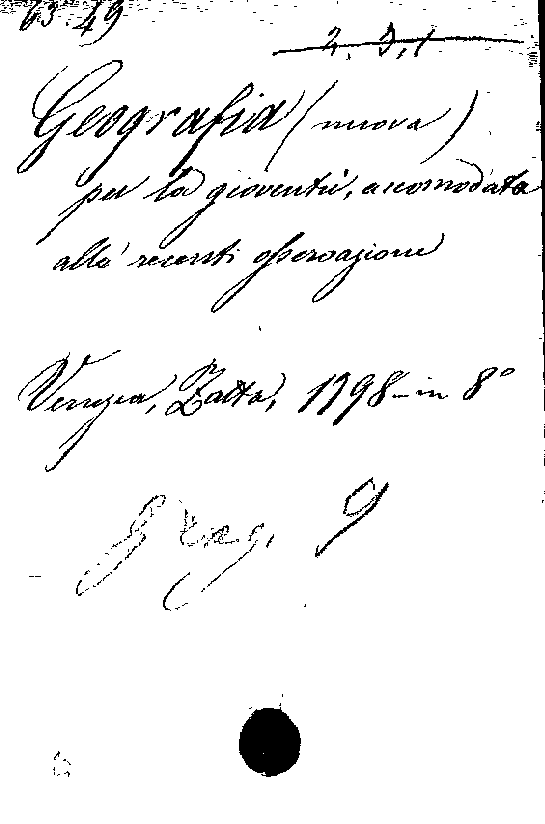 63.49
2. 3, 1
Geografia (nuova)
per la gioventù, accomodata
alle recenti osservazione
Venezia, Zatta, 1798 - in 8°
9